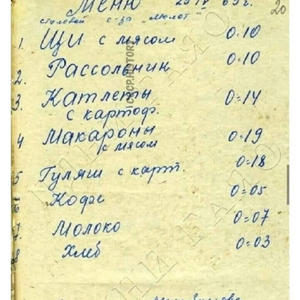 Меню
столовой с-за "Молот"
20
1. Щи с мясом 0=10
2. Рассольник 0=10
3. Катлеты 0=14
с картоф.
4 Макароны 0=19
с мясом
5 Гуляш с карт. 0=18
Кофе 0=05
7. Молоко 0=07
8 Хлб 0=03